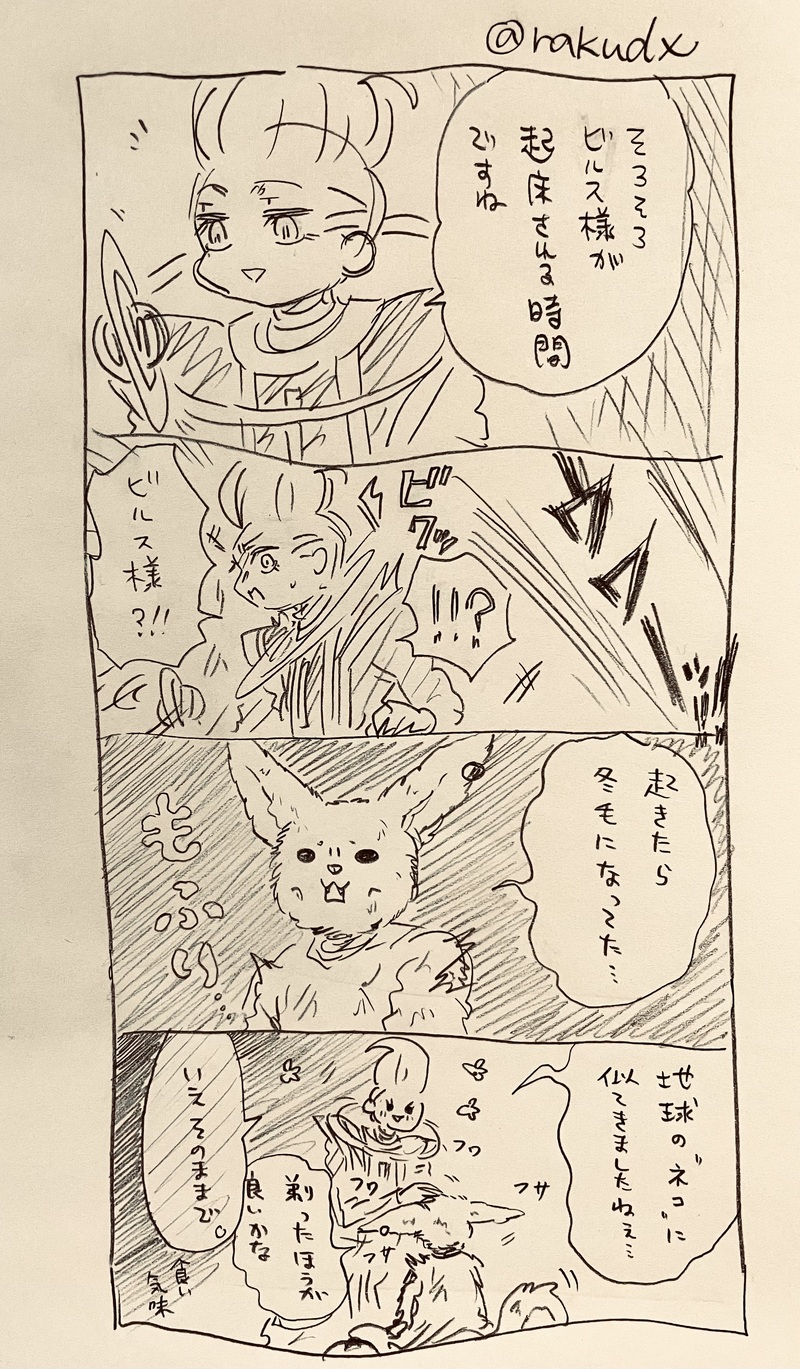 @rakudx
そろそろ
ビルス様が
起床される時間
ですね
ウ
ビクッ
!!?
ビルス様?!!
起きたら
冬毛になってた…
もふり…
地球の"ネコ"に
似てきましたねぇ…
フワ
フワ
フサ
フサ
剃ったほうが
良いかな
いえそのままで。
食い
気味